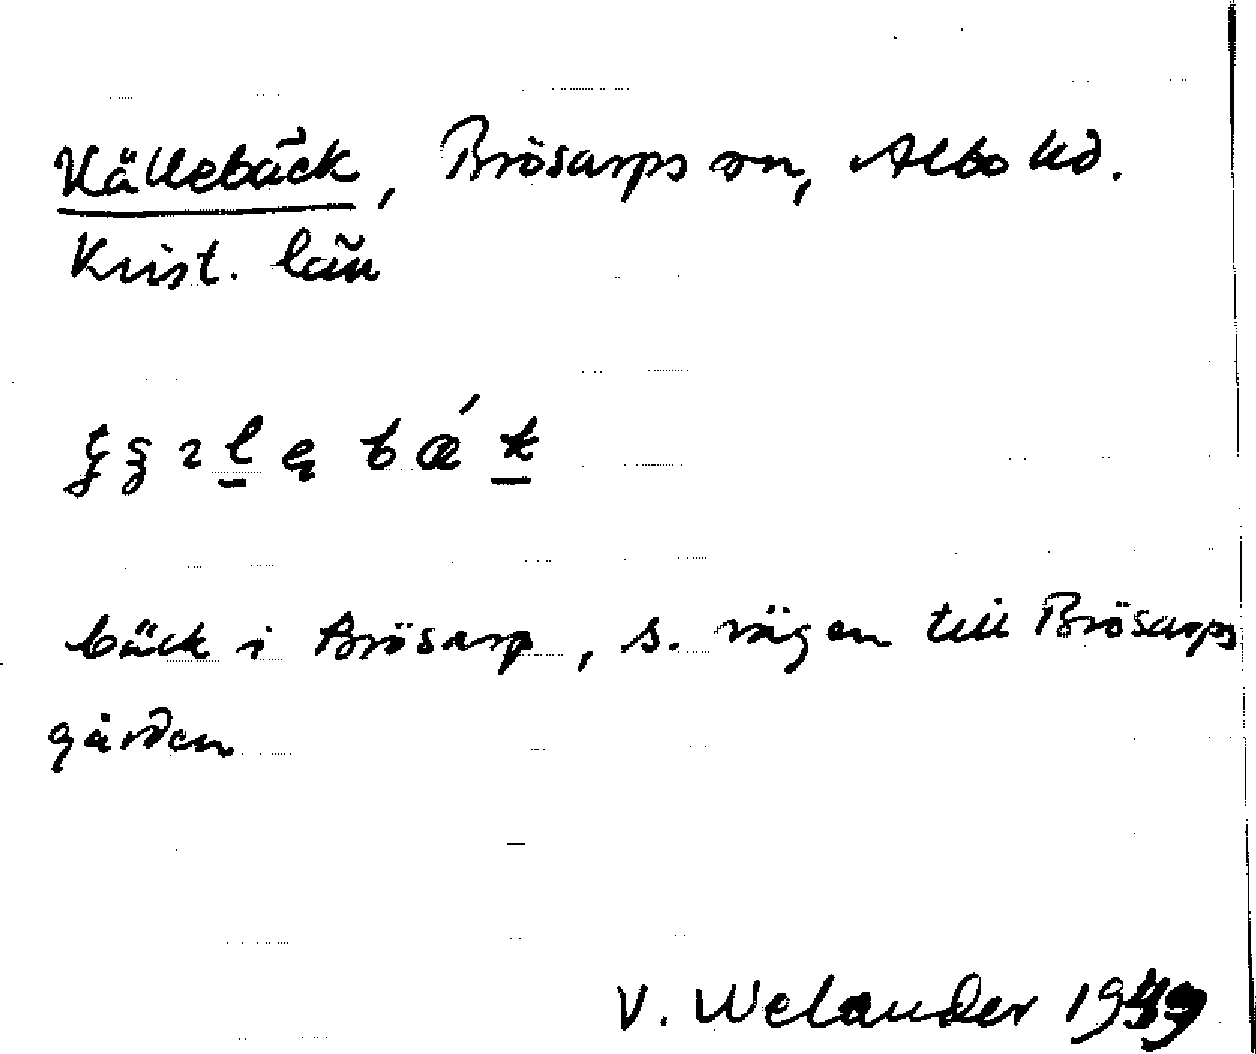 Källebäck, Brösarps sn, Albo hd.
Krist. län
bäck i Brösarp, s. vägen till Brösarps
gården
V. Welander